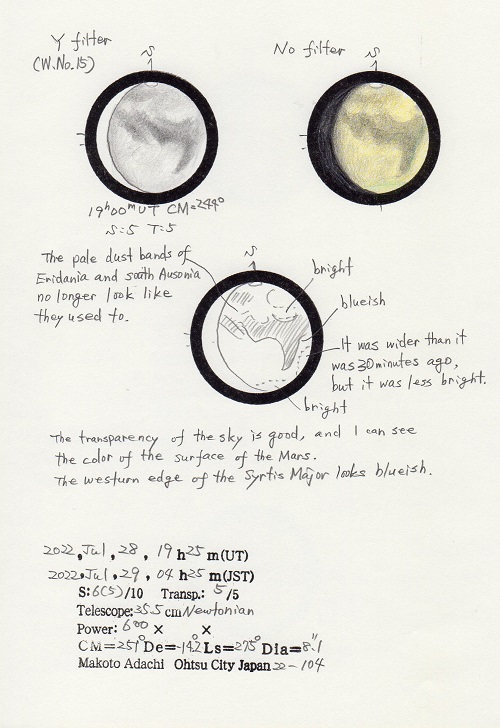 Y filter
(W.No.15)
No filter
S
S
19h00m UT CM=244°
S=5 T=5
The pale dust bands of
Eridania and south Ausonia
no longer look like
they used to.
S
bright
blueish
It was wider than it
was 30 minutes ago,
but it was less bright.
bright
The transparency of the sky is good, and I can see
the color of the surface of the Mars.
The westurn edge of the Syrtis Major looks blueish.
2022, Jul, 28, 19 h25 m(UT)
2022, Jul, 29, 04 h25 m(JST)
S:6(5)/10 Transp.: 5/5
Telescope:355 cm Newtonian
Power: 600 × ×
CM=251° De=-14.2 Ls=275° Dia=8.″1
Makoto Adachi Ohtsu City Japan 22-104